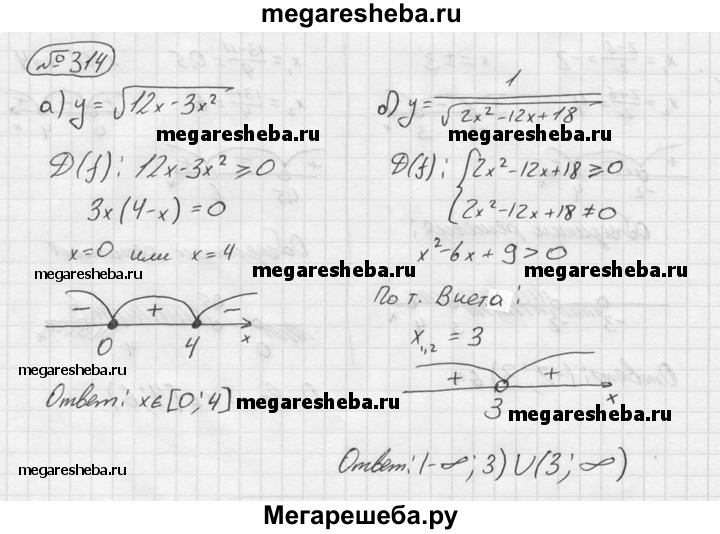 megaresheba.ru
№314
а) y = √(12x - 3x²)
megaresheba.ru
D(f): 12x - 3x² ≥ 0
3x(4 - x) = 0
x = 0 или x = 4
megaresheba.ru
- + -
0 4 x
megaresheba.ru
Ответ: x ∈ [0; 4]
megaresheba.ru
megaresheba.ru
б) y = 1/√(2x² - 12x + 18)
megaresheba.ru
D(f): { 2x² - 12x + 18 ≥ 0
2x² - 12x + 18 ≠ 0
x² - 6x + 9 > 0
megaresheba.ru megaresheba.ru
По т. Виета:
x₁,₂ = 3
+ +
3 x
megaresheba.ru
Ответ: (-∞; 3) ∪ (3; ∞)
Мегарешеба.ру